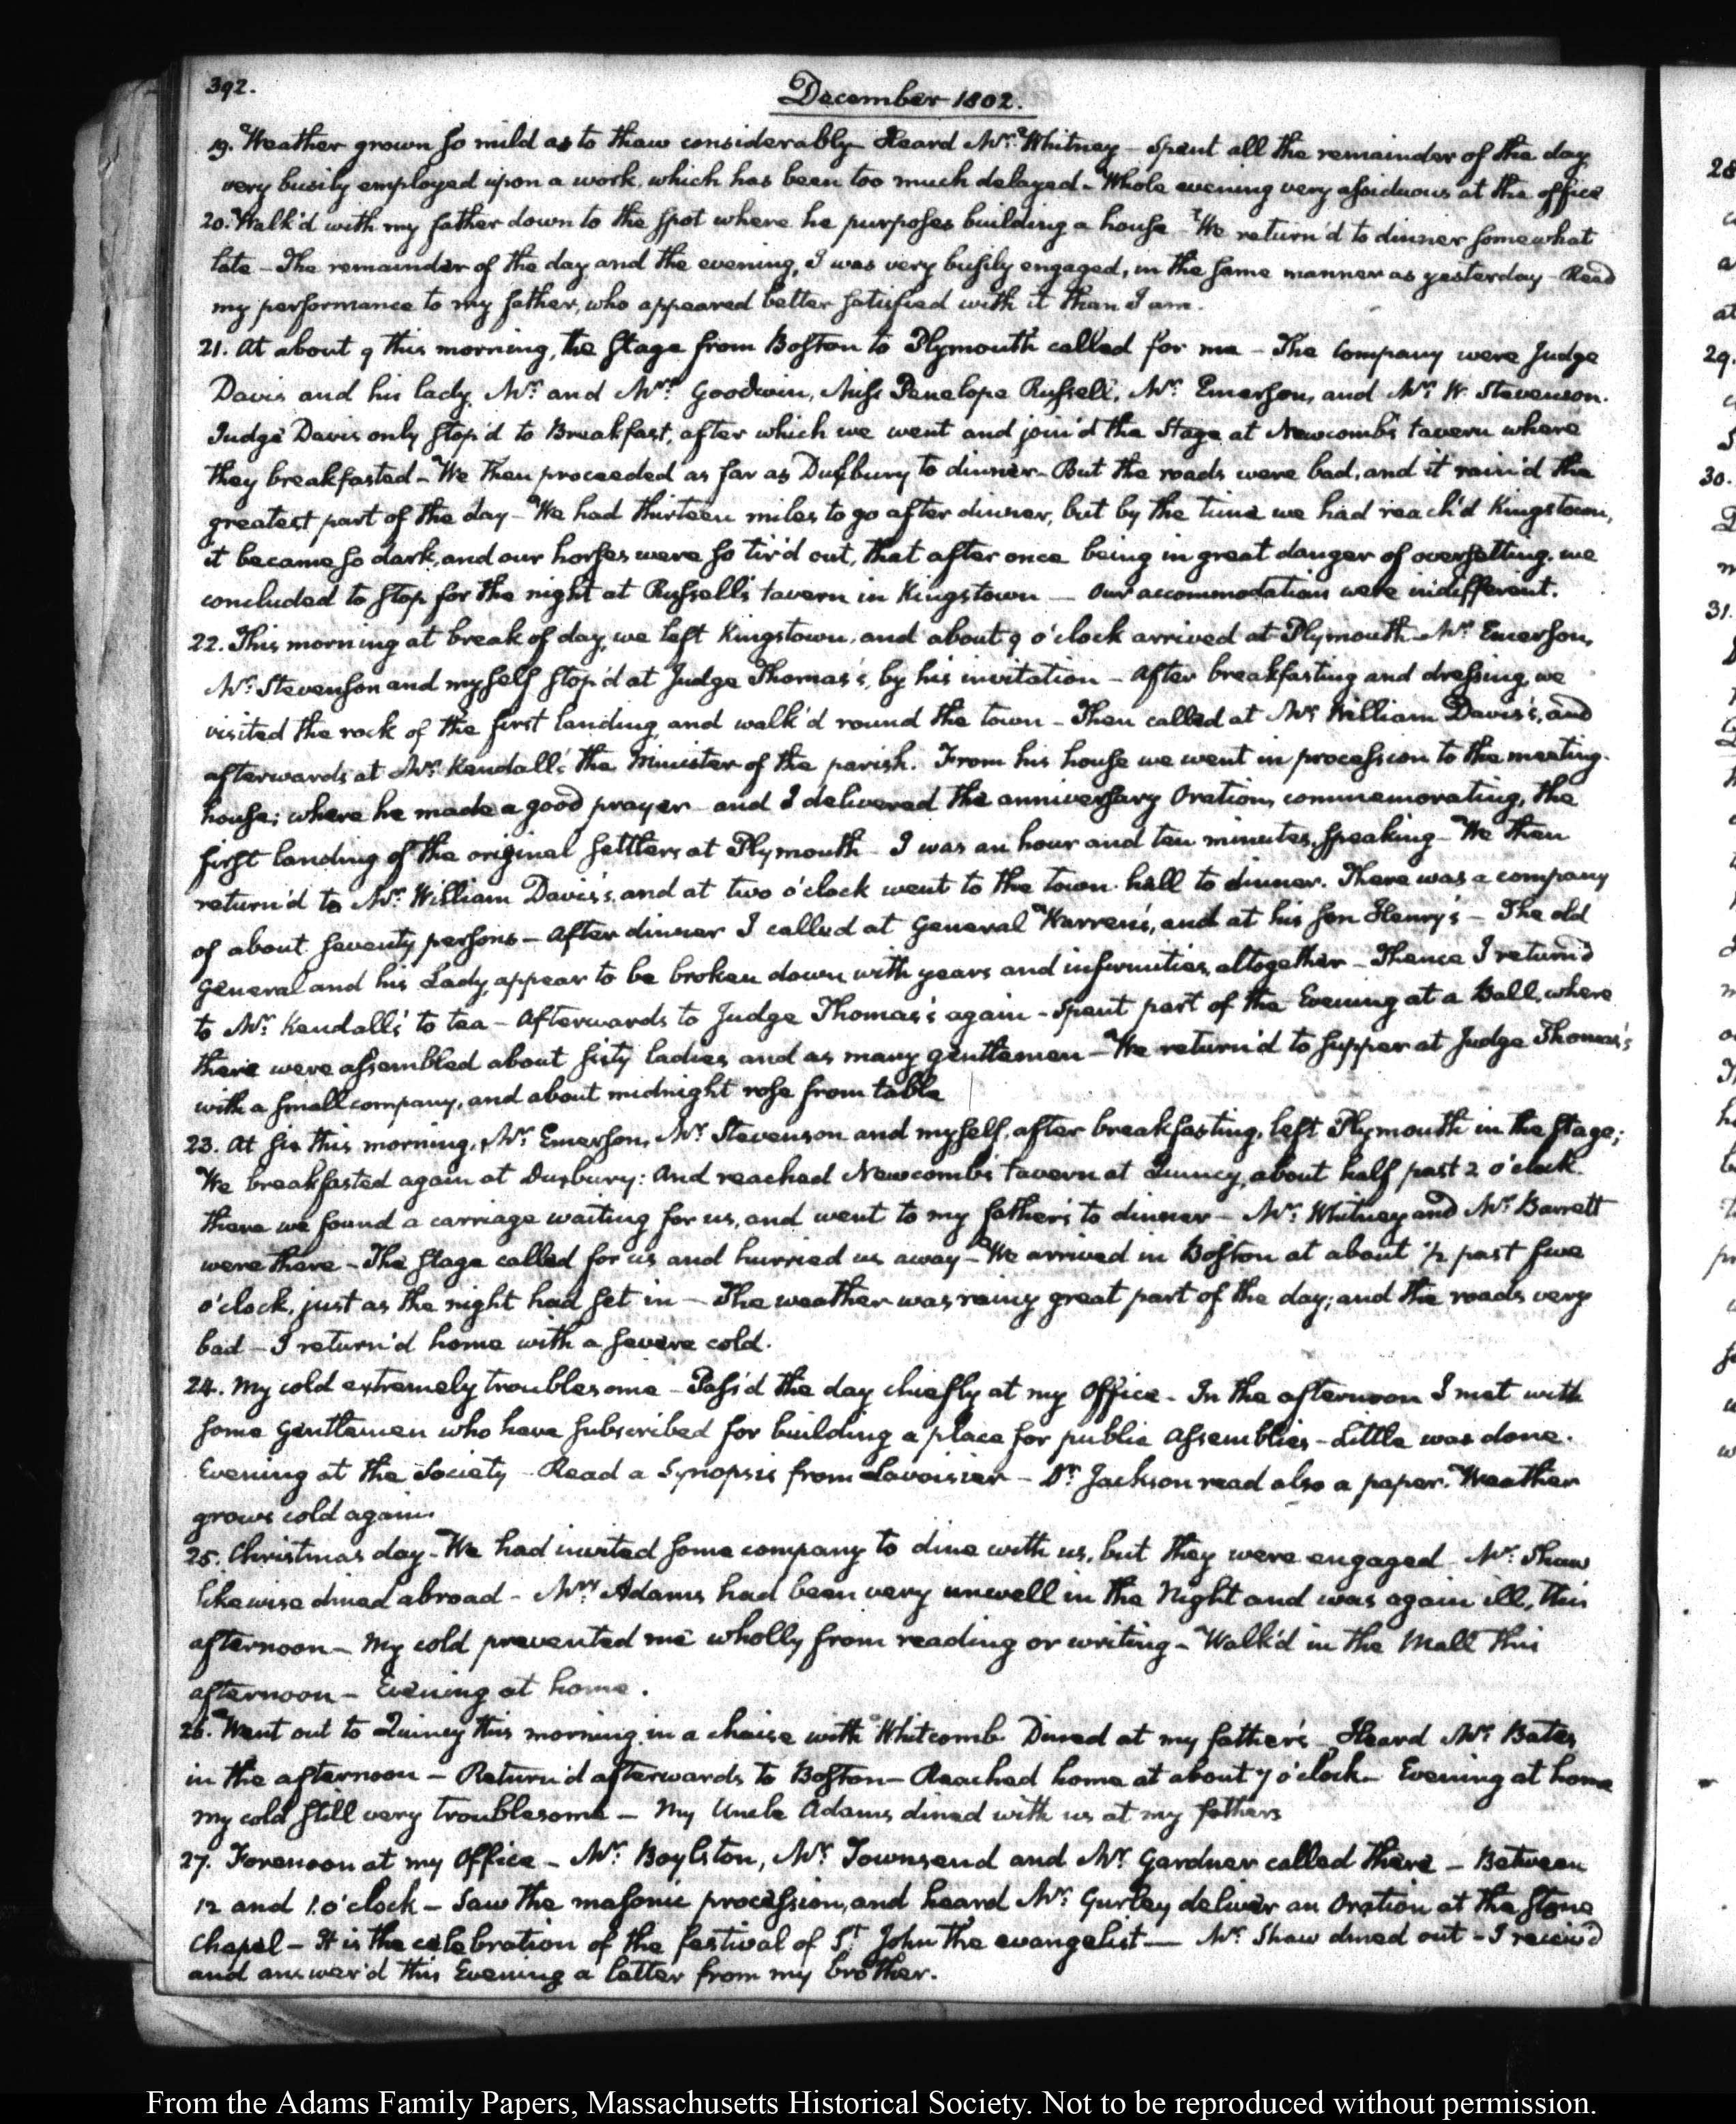 392.
December 1802.
19. Weather grown so mild as to thaw considerably – Heard Mr: Whitney – Spent all the remainder of the day
very busily employed upon a work, which has been too much delayed – Whole evening very assiduous at the office
20. Walk'd with my father down to the spot where he purposes building a house – We return'd to dinner somewhat
late – The remainder of the day and the evening, I was very busily engaged, in the same manner as yesterday – Read
my performance to my father, who appeared better satisfied with it than I am.
21. At about 9 this morning, the Stage from Boston to Plymouth called for me – The Company were Judge
Davis and his lady, Mr: and Mrs: Goodwin, Miss Penelope Russell, Mr: Emerson, and Mr: W. Stevenson.
Judge Davis only stop'd to Breakfast, after which we went and join'd the Stage at Newcomb's tavern where
they breakfasted – We then proceeded as far as Duxbury to dinner – But the roads were bad, and it rain'd the
greatest part of the day – We had thirteen miles to go after dinner, but by the time we had reach'd Kingstown,
it became so dark, and our horses were so tir'd out, that after once being in great danger of oversetting, we
concluded to stop for the night at Russell's tavern in Kingstown — Our accommodations were indifferent.
22. This morning at break of day, we left Kingstown, and about 9 o'clock arrived at Plymouth. Mr: Emerson,
Mr: Stevenson and myself stop'd at Judge Thomas's, by his invitation – After breakfasting and dressing, we
visited the rock of the first landing, and walk'd round the town – Then called at Mr: William Davis's, and
afterwards at Mr: Kendall's the Minister of the parish. From his house we went in procession to the meeting-
house; where he made a good prayer and I delivered the anniversary Oration, commemorating, the
first landing of the original settlers at Plymouth – I was an hour and ten minutes, speaking – We then
return'd to Mr: William Davis's, and at two o'clock went to the town-hall to dinner. There was a company
of about seventy persons – After dinner I called at General Warren's, and at his son Henry's – The old
General and his Lady, appear to be broken down with years and infirmities, altogether – Thence I return'd
to Mr: Kendall's to tea – Afterwards to Judge Thomas's again – Spent part of the Evening at a Ball, where
there were assembled about sixty ladies and as many gentlemen – We return'd to supper at Judge Thomas's
with a small company, and about midnight rose from table
23. At six this morning, Mr: Emerson, Mr: Stevenson and myself, after breakfasting, left Plymouth in the stage;
We breakfasted again at Duxbury: And reached Newcomb's tavern at Quincy, about half past 2 o'clock.
there we found a carriage waiting for us, and went to my father's to dinner – Mr: Whitney and Mr: Barrett
were there – The Stage called for us and hurried us away – We arrived in Boston at about 1/2 past five
o'clock, just as the night had set in – The weather was rainy great part of the day; and the roads very
bad – I return'd home with a severe cold.
24. My cold extremely troublesome – Pass'd the day chiefly at my Office – In the afternoon I met with
some Gentlemen who have subscribed for building a place for public Assemblies – Little was done.
Evening at the Society – Read a Synopsis from Lavoisier – Dr: Jackson read also a paper. Weather
grows cold again.
25. Christmas day – We had invited some company to dine with us, but they were engaged – Mr: Shaw
likewise dined abroad – Mrs: Adams had been very unwell in the Night and was again ill, this
afternoon – My cold prevented me wholly from reading or writing – Walk'd in the Mall this
afternoon – Evening at home.
26. Went out to Quincy this morning, in a chaise with Whitcomb. Dined at my father's – Heard Mr: Bates
in the afternoon – Return'd afterwards to Boston – Reached home at about 7 o'clock – Evening at home
my cold still very troublesome – My Uncle Adams dined with us at my fathers
27. Forenoon at my Office – Mr: Boylston, Mr: Townsend and Mr: Gardner called there – Between
12 and 1. o'clock – Saw the masonic procession, and heard Mr: Gurley deliver an Oration at the Stone
Chapel – It is the celebration of the festival of St: John the evangelist — Mr: Shaw dined out – I receiv'd
and answer'd this Evening a letter from my brother.
28
29.
30.
31.
From the Adams Family Papers, Massachusetts Historical Society. Not to be reproduced without permission.